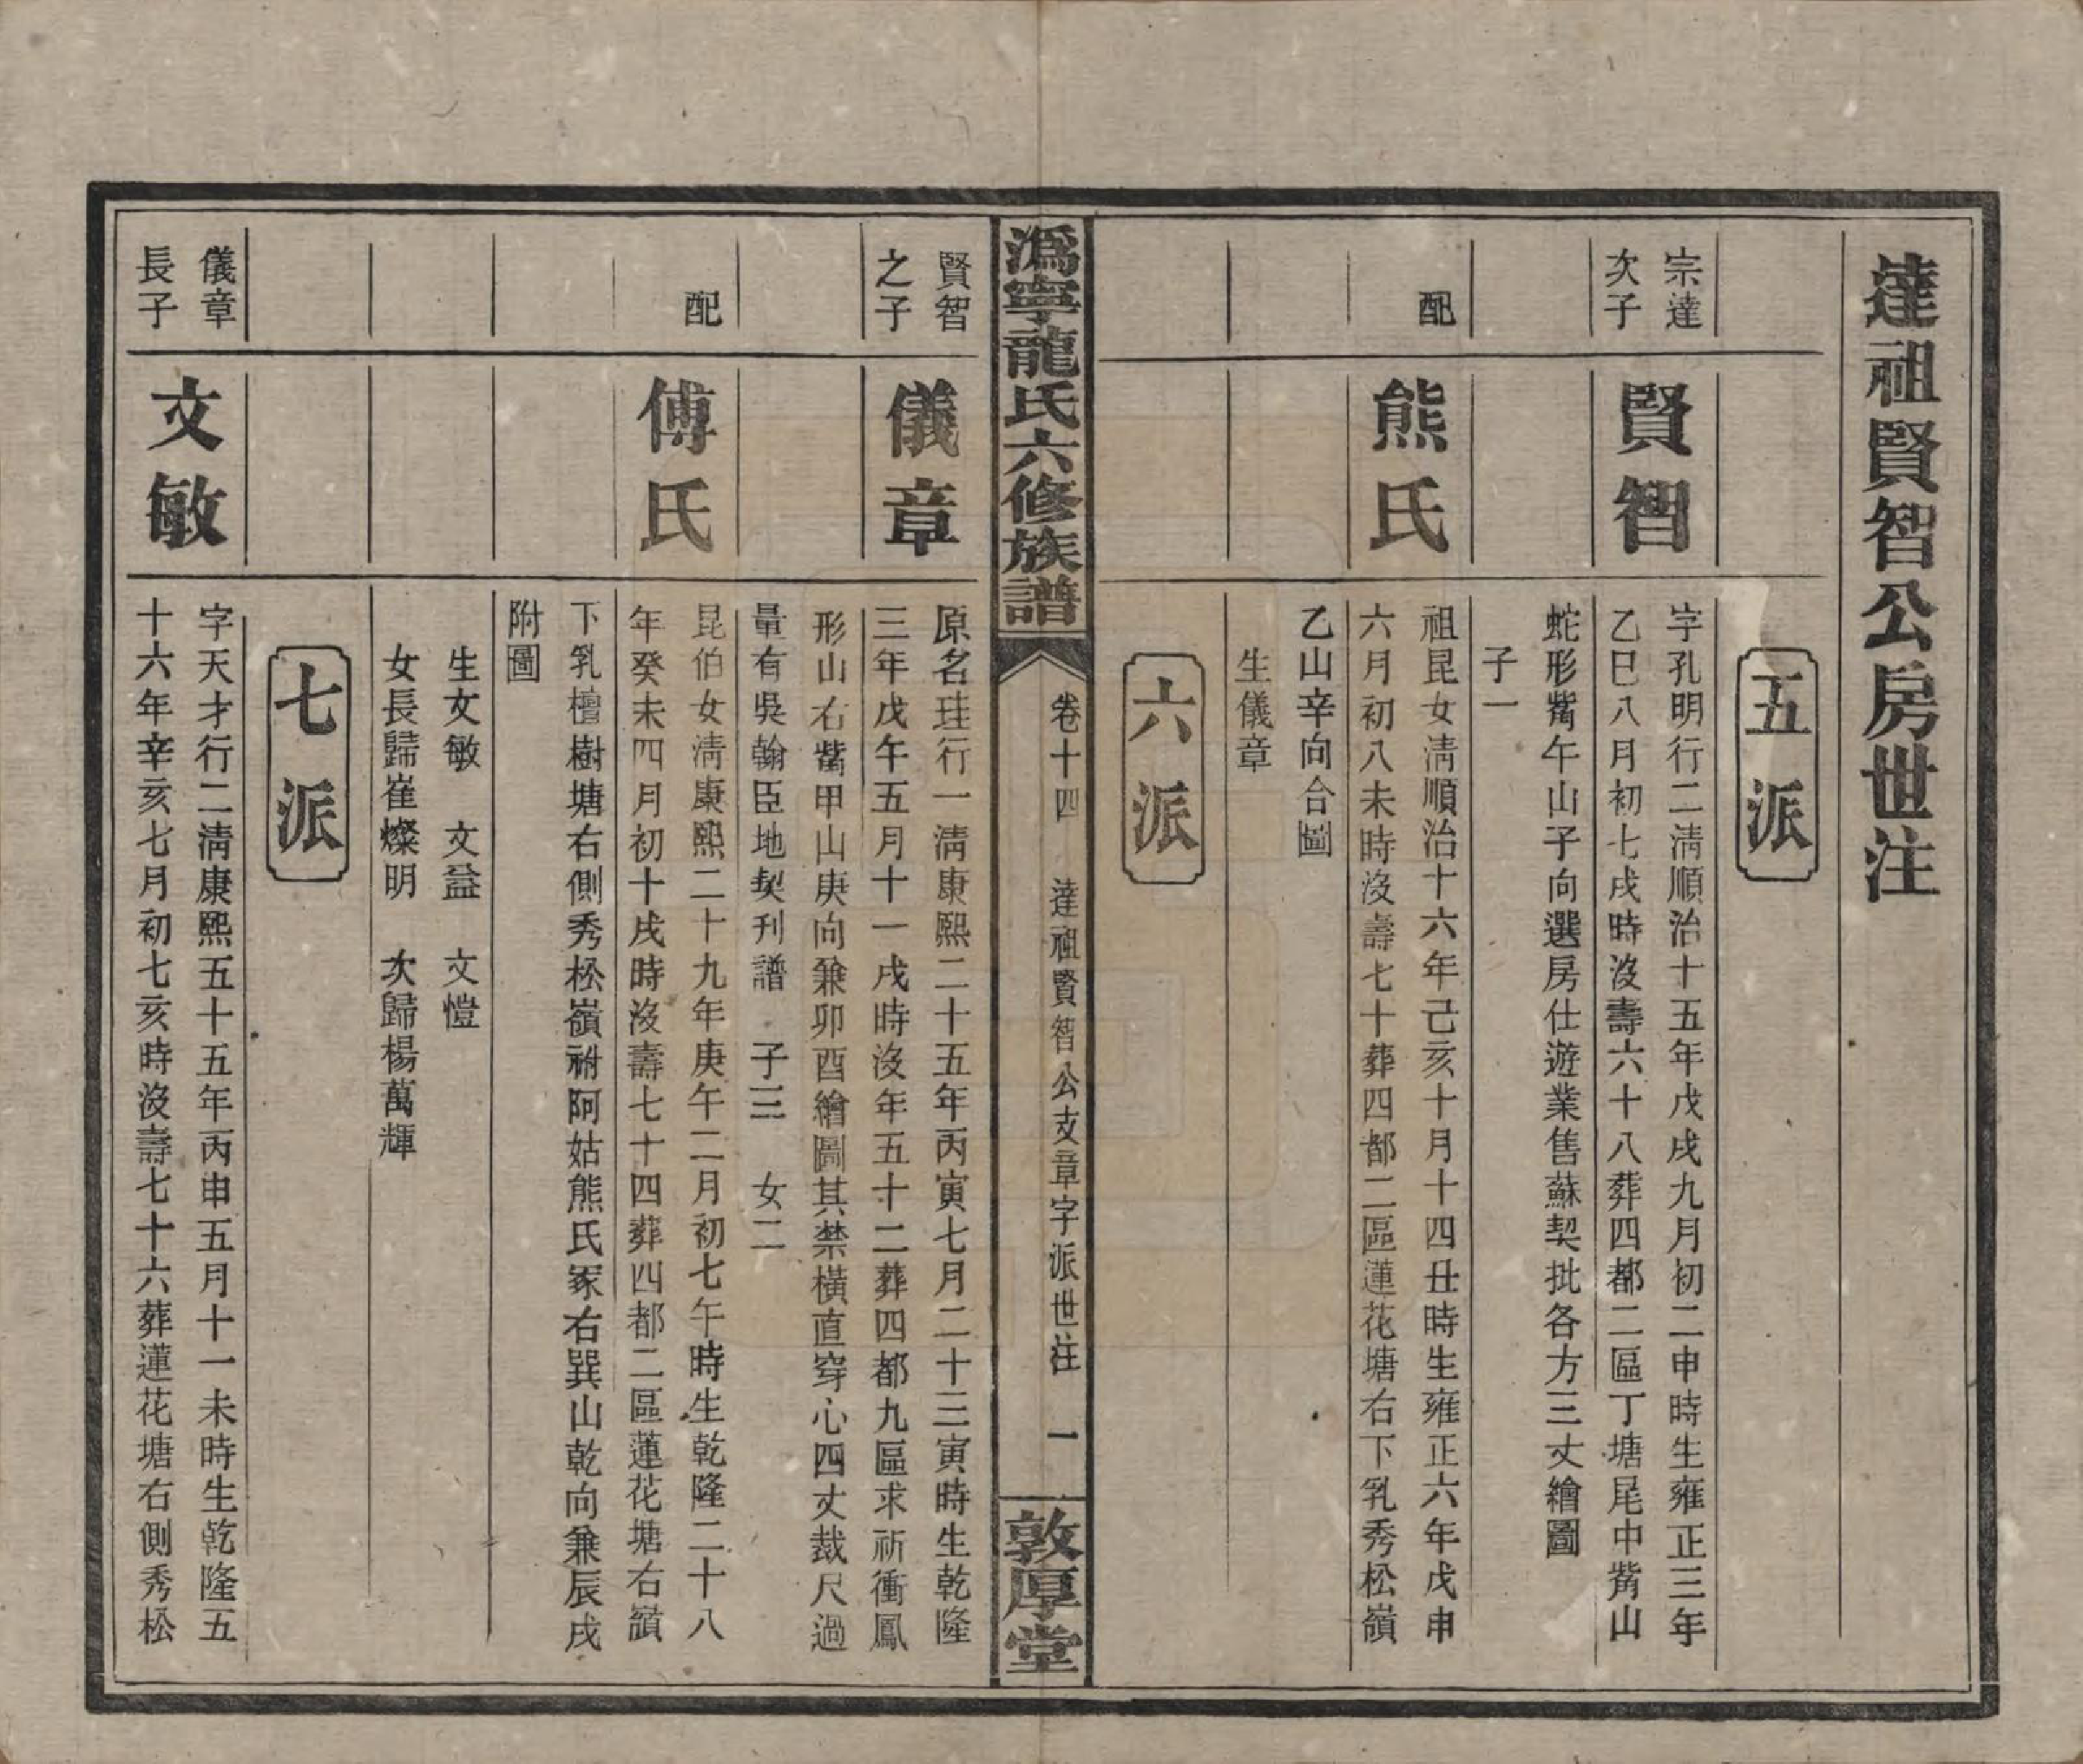 達祖賢智公房世注
五派
宗達
次子
賢智
字孔明行二清順治十五年戊戌九月初二申時生雍正三年
乙巳八月初七戌時沒壽六十八葬四都二區丁塘尾中觜山
蛇形觜午山子向選房仕遊業售蘇契批各方三丈繪圖
子一
配
熊氏
祖昆女淸順治十六年己亥十月十四丑時生雍正六年戊申
六月初八未時沒壽七十葬四都二區蓮花塘右下乳秀松嶺
乙山辛向合圖
生儀章
六派
溈寧龍氏六修族譜
卷十四
達祖賢智公支章字派世注
一
敦厚堂
賢智
之子
儀章
原名珪行一淸康熙二十五年丙寅七月二十三寅時生乾隆
三年戊午五月十一戌時沒年五十二葬四都九區求祈衝鳳
形山右觜甲山庚向兼卯酉繪圖其禁橫直穿心四丈裁尺過
量有吳翰臣地契刊譜 子三 女二
配
傅氏
昆伯女淸康熙二十九年庚午二月初七午時生乾隆二十八
年癸未四月初十戌時沒壽七十四葬四都二區蓮花塘右嶺
下乳檀樹塘右側秀松嶺祔阿姑熊氏冢右巽山乾向兼辰戌
附圖
生文敏 文益 文愷
女長歸崔燦明 次歸楊萬輝
七派
儀章
長子
文敏
字天才行二淸康熙五十五年丙申五月十一未時生乾隆五
十六年辛亥七月初七亥時沒壽七十六葬蓮花塘右側秀松